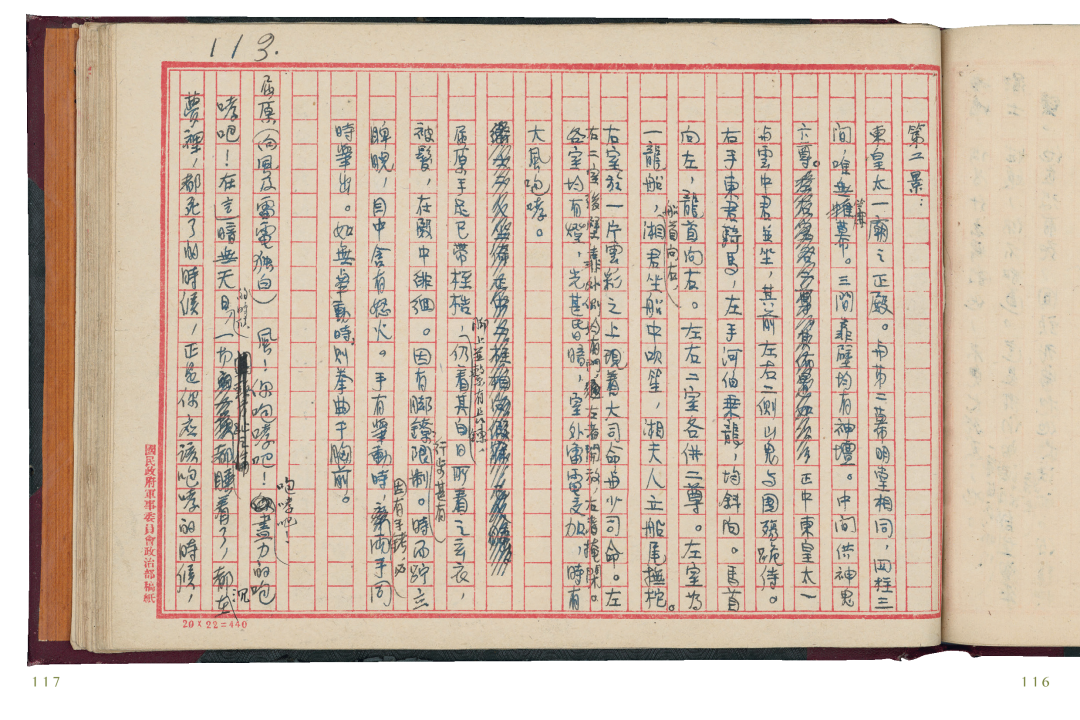 113.
第二景：
東皇太一廟之正殿。与第二幕明堂相同，四柱三
間，唯無帷幕。三間靠壁均有神壇。中間供神鬼
六尊。正中東皇太一
与雲中君並坐，其前左右二側山鬼与國殤跪侍。
右手東君騎馬，左手河伯乘龍，均斜向。馬首
向左，龍首向右。左右二室各供二尊。左室為
一龍船，船首向右，湘君坐船中吹笙，湘夫人立船尾撫柁。
右室於一片雲彩之上現着大司命与少司命。左
右二室後壁靠外側均有門，左者開放，右者掩閉。
各室均有燈，光甚昏暗，室外雷電交加，時有
大風咆哮。
屈原手足已帶桎梏，仍着其白日所着之玄衣，
披髮，在殿中徘徊。因有腳鐐，行步甚有限制。時而佇立
睥睨，目中含有怒火。手有舉動時，兩手同
時舉出。如無舉動時，則拳曲于胸前。
屈原（向風及雷電獨白）風！你咆哮吧！咆哮吧！盡力的咆
哮吧！在這暗無天日的時候，一切都睡着了，都沉在
夢裡，都死了的時候，正是你應該咆哮的時候，
國民政府軍事委員會政治部稿紙
20×22=440
117
116